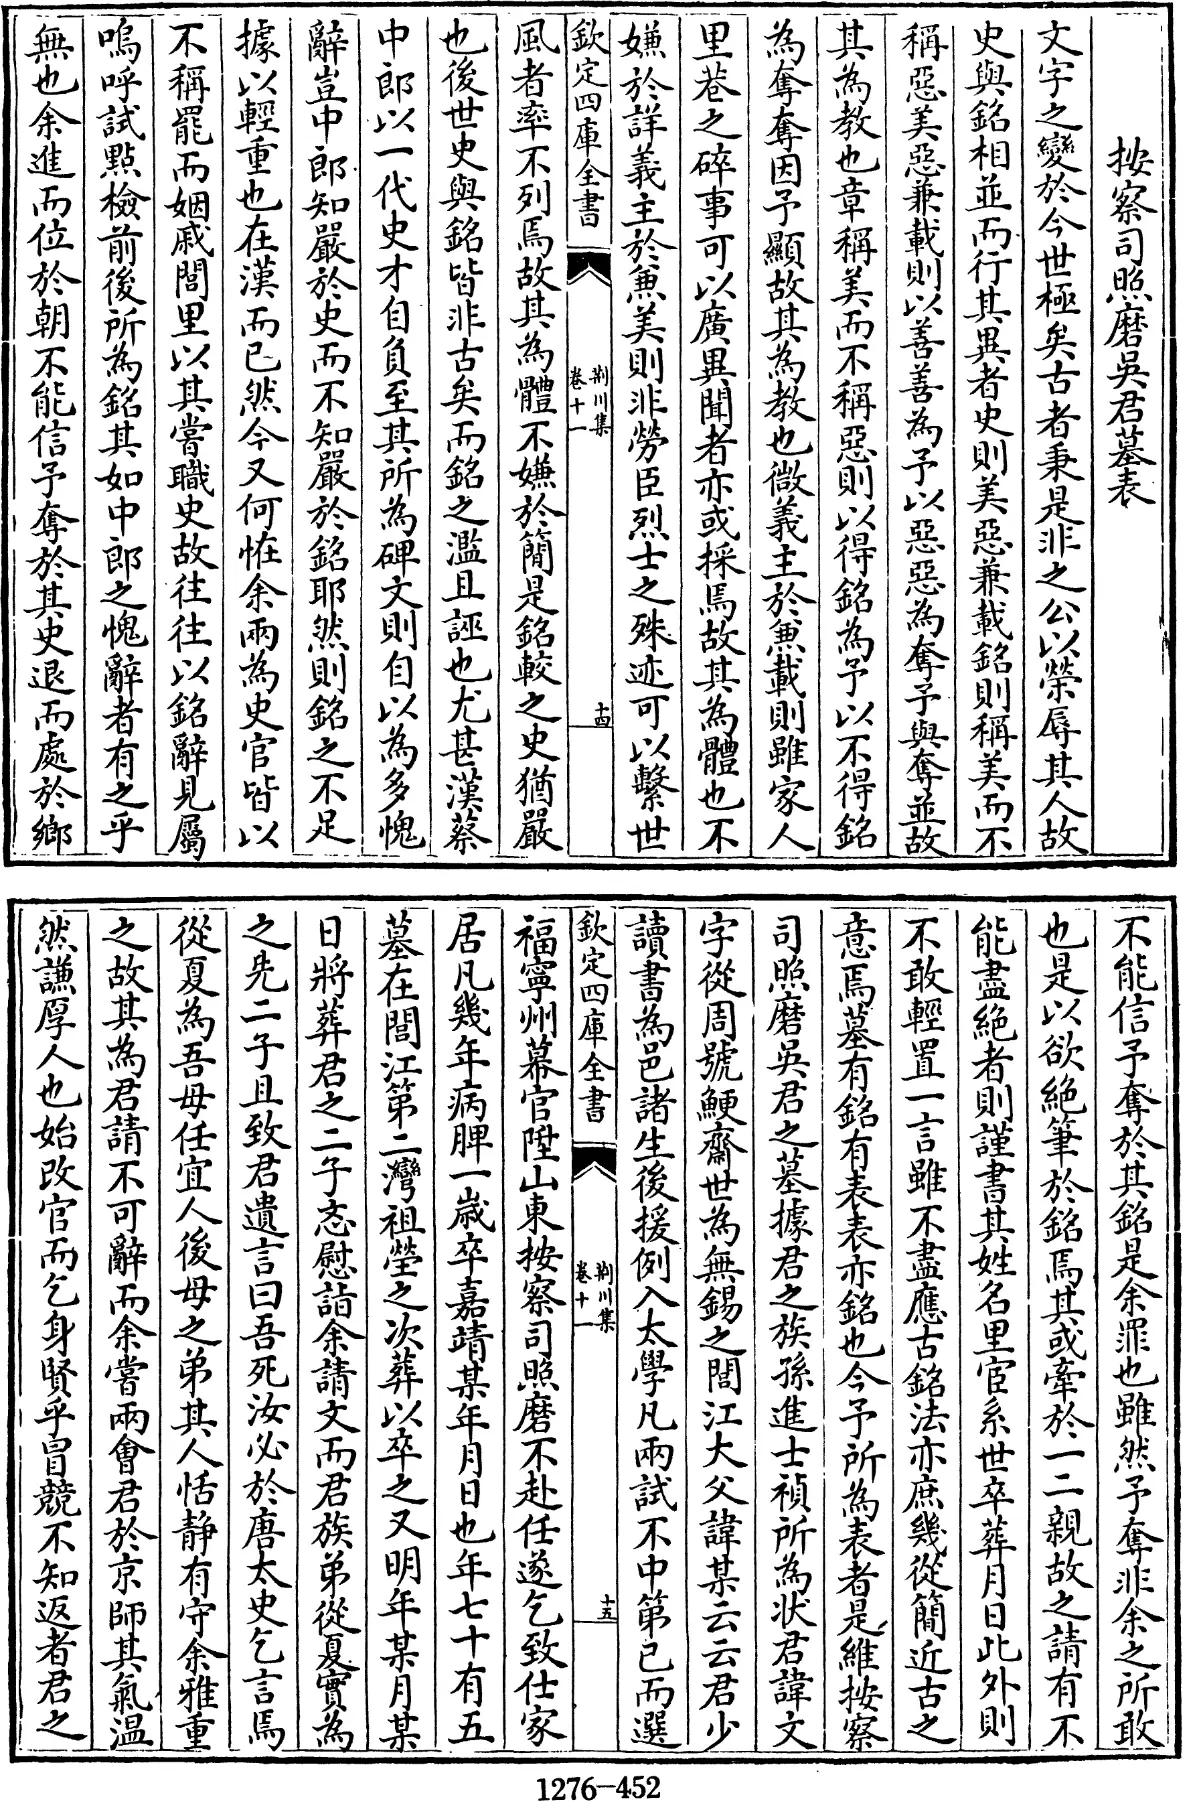 按察司照磨吳君墓表
文字之變於今世極矣古者秉是非之公以榮辱其人故
史與銘相並而行其異者史則美惡兼載銘則稱美而不
稱惡美惡兼載則以善善為予以惡惡為奪予與奪並故
其為教也章稱美而不稱惡則以得銘為予以不得銘
為奪奪因予顯故其為教也微義主於兼載則雖家人
里巷之碎事可以廣異聞者亦或採焉故其為體也不
嫌於詳義主於兼美則非勞臣烈士之殊迹可以繫世
欽定四庫全書
荆川集
卷十一
十四
風者率不列焉故其為體不嫌於簡是銘較之史猶嚴
也後世史與銘皆非古矣而銘之濫且誣也尤甚漢蔡
中郎以一代史才自負至其所為碑文則自以為多愧
辭豈中郎知嚴於史而不知嚴於銘耶然則銘之不足
據以輕重也在漢而已然今又何恠余兩為史官皆以
不稱罷而姻戚閭里以其嘗職史故往往以銘辭見屬
嗚呼試點檢前後所為銘其如中郎之愧辭者有之乎
無也余進而位於朝不能信予奪於其史退而處於鄉
不能信予奪於其銘是余罪也雖然予奪非余之所敢
也是以欲絶筆於銘焉其或牽於一二親故之請有不
能盡絶者則謹書其姓名里宦系世卒葬月日此外則
不敢輕置一言雖不盡應古銘法亦庶幾從簡近古之
意焉墓有銘有表表亦銘也今予所為表者是維按察
司照磨吳君之墓據君之族孫進士禎所為狀君諱文
字從周號鯁齋世為無錫之閭江大父諱某云云君少
讀書為邑諸生後援例入太學凡兩試不中第已而選
欽定四庫全書
荆川集
卷十一
十五
福寧州幕官陞山東按察司照磨不赴任遂乞致仕家
居凡幾年病脾一歲卒嘉靖某年月日也年七十有五
墓在閭江第二灣祖塋之次葬以卒之又明年某月某
日將葬君之二子忞慰詣余請文而君族弟從夏實為
之先二子且致君遺言曰吾死汝必於唐太史乞言焉
從夏為吾母任宜人後母之弟其人恬静有守余雅重
之故其為君請不可辭而余嘗兩會君於京師其氣温
然謙厚人也始改官而乞身賢乎冒競不知返者君之
1276-452